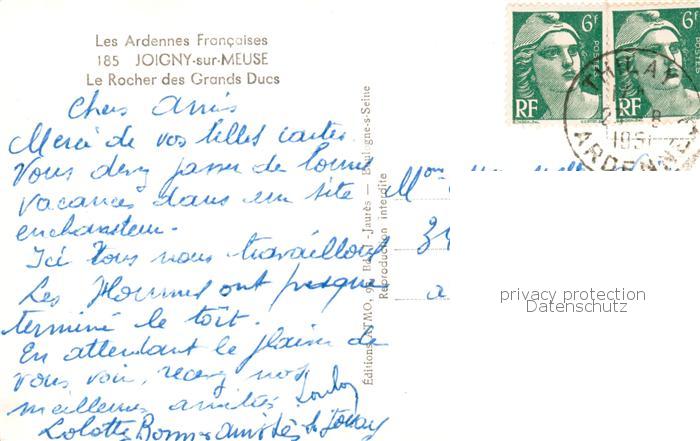 Les Ardennes Françaises
185 JOIGNY-sur-MEUSE
Le Rocher des Grands Ducs
Chers Amis
Merci de vos belles cartes.
Vous devez passer de bonnes
vacances dans un site
enchanteur.
Ici tous nous travaillons
Les Hommes ont presque
terminé le toit.
En attendant le plaisir de
vous voir, recevez nos
meilleures amitiés.
Lolotte Bonnes amitiés
Éditions ATMO, Jaurès — Boulogne-s-Seine
Reproduction interdite
6F
6F
POSTES
RF
RF
THILAY
1951
ARDENNES
privacy protection
Datenschutz